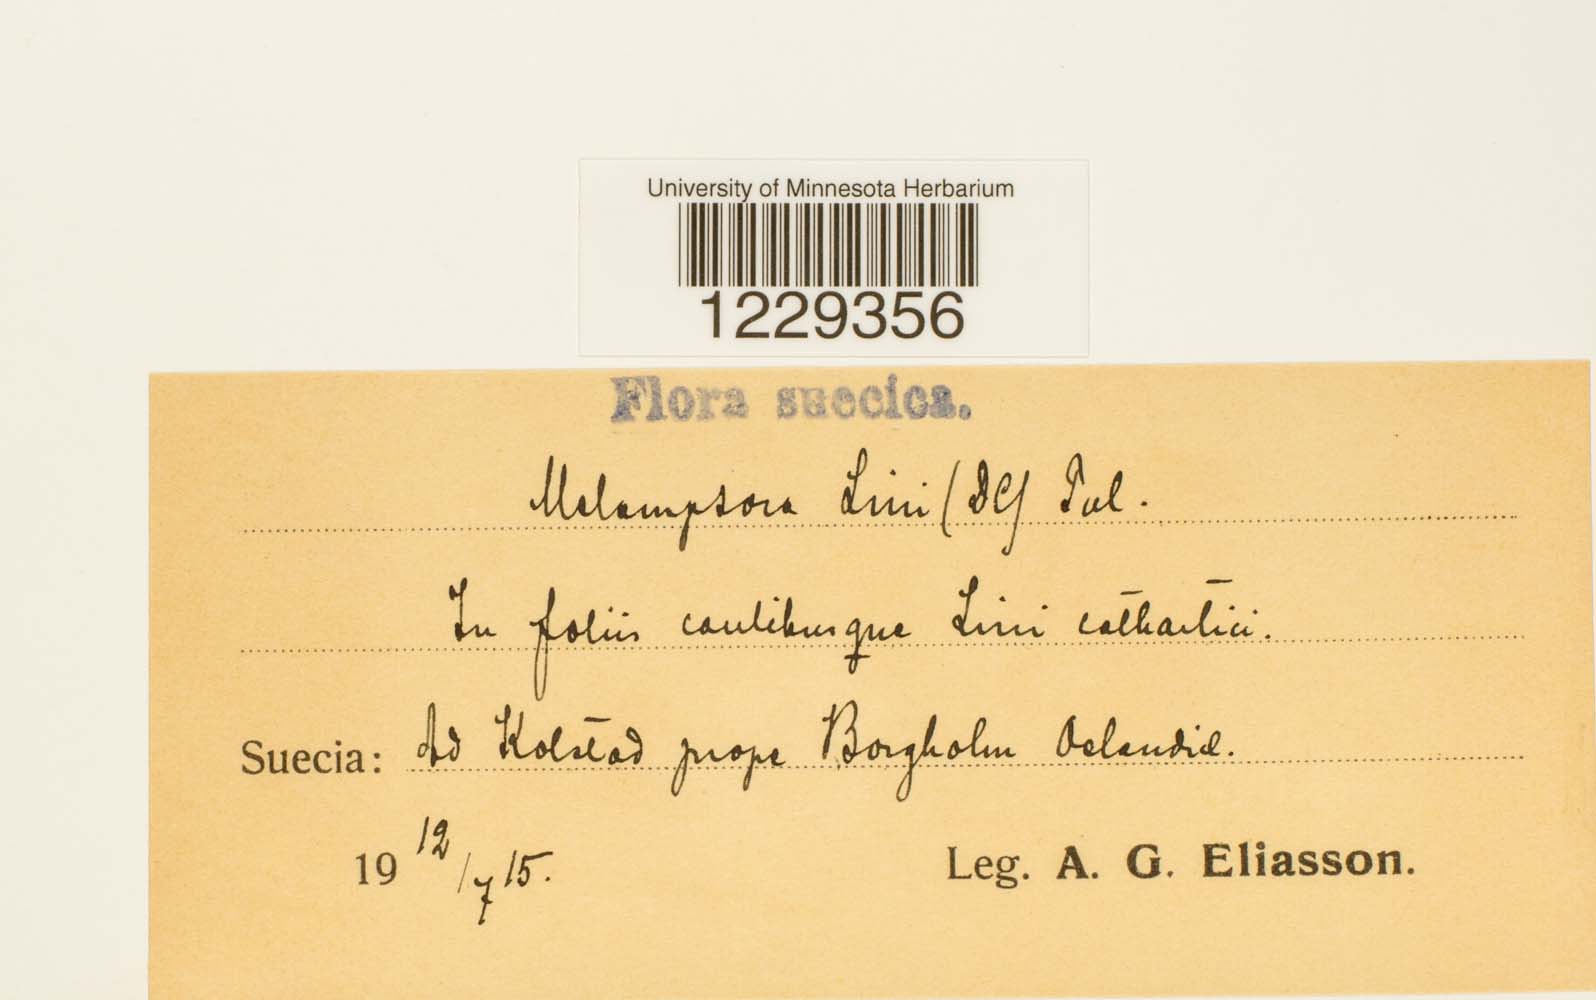 University of Minnesota Herbarium
1229356
Flora suecica.
Melampsora Lini (DC) Tul.
In foliis caulibusque Lini cathartici.
Suecia: Ad Kolstad prope Borgholm Oelandiæ.
19 12/7 15.
Leg. A. G. Eliasson.